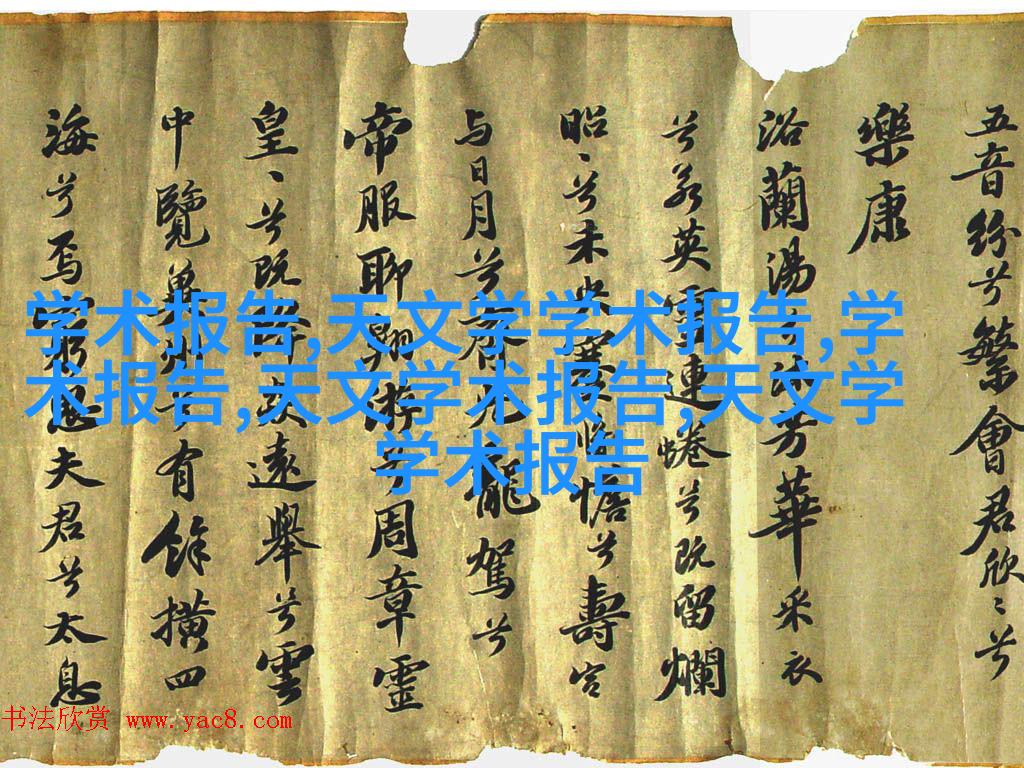 五音紛兮繁會君欣〻兮
樂康
浴蘭湯兮沐芳華采衣
兮若英靈連蜷兮既留爛
昭〻兮未央蹇将憺兮壽宮
与日月兮齊光龍駕兮
帝服聊翱游兮周章靈
皇〻兮既降猋遠舉兮雲
中覽冀州兮有餘橫四
海兮焉窮思夫君兮太息
学术报告,天文学学术报告,学
术报告,天文学术报告,天文学
学术报告
书法欣赏 www.yac8.com